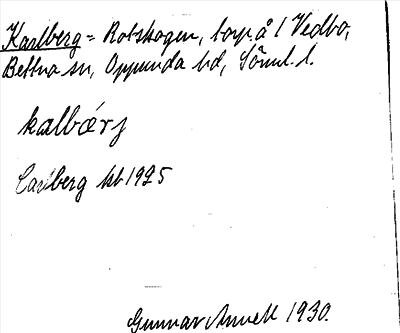 Karlberg = Rotskogen, torp å l Vedbo,
Bettna sn, Oppunda hd, Söml. l.
kalbærj
Carlberg kb 1925
Gunnar Annell 1930.